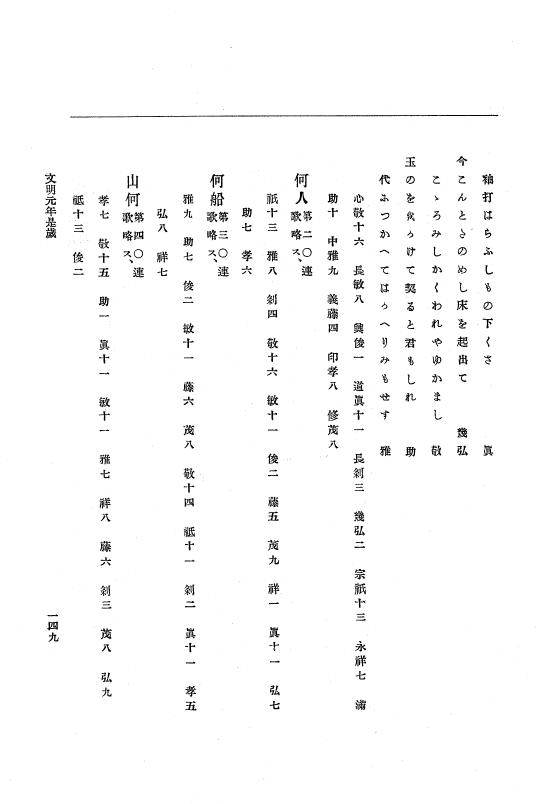 釉打はらふしもの下くさ　眞
今こんとさのめし床を起出て　幾弘
こゝろみしかくわれやゆかまし　敬
玉のを代うけて契ると君もしれ　助
代ふつかへてはうへりみもせす　雅
心敬十六　長敏八　興俊一　道眞十一　長剣三　幾弘二　宗祇十三　永祥七　滿
助十　中雅九　義藤四　印孝八　修茂八
何人 第二〇連 歌略ス、
祇十三　雅八　剣四　敬十六　敏十一　俊二　藤五　茂九　祥一　眞十一　弘七
助七　孝六
何船 第三〇連 歌略ス、
雅九　助七　俊二　敏十一　藤六　茂八　敬十四　祗十一　剣二　眞十一　孝五
弘八　祥七
山何 第四〇連 歌略ス、
孝七　敬十五　助一　眞十一　敏十一　雅七　祥八　藤六　剣三　茂八　弘九
祗十三　俊二
文明元年是歲
一四九